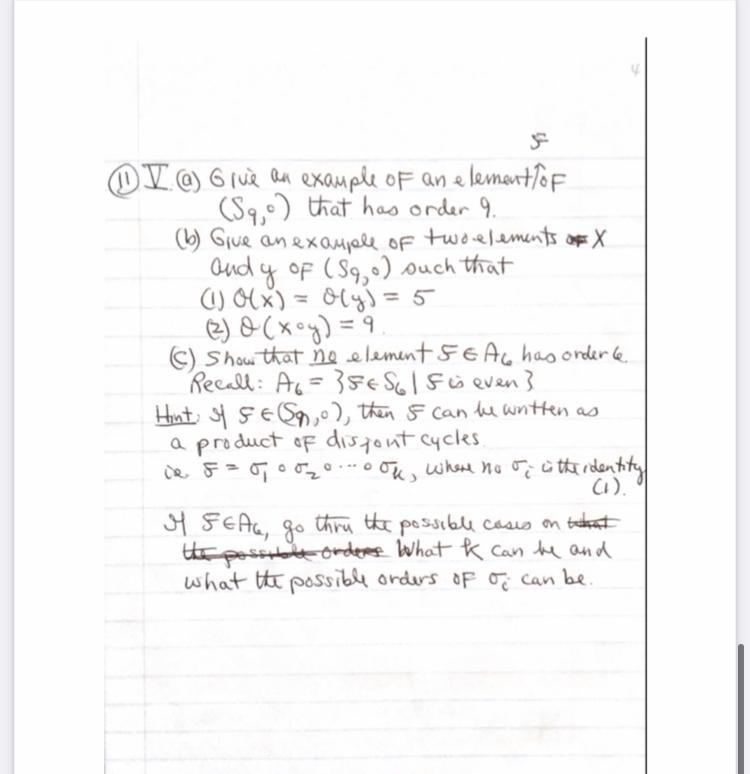 4
f
(11) V. (a) Give an example of an element ↑ of
(S9,∘) that has order 9.
(b) Give an example of two elements of X
and y of (S9,∘) such that
(1) O(x) = O(y) = 5
(2) O(x∘y) = 9.
(c) Show that no element f ∈ A6 has order 6.
Recall: A6 = {f ∈ S6 | f is even}
Hint: If f ∈ (Sn,∘), then f can be written as
a product of disjont cycles.
ie f = σ1 ∘ σ2 ∘ ⋯ ∘ σk, where no σi is the identity
(1).
If f ∈ A6, go thru the possible cases on what
the possible orders What k can be and
what the possible orders of σi can be.